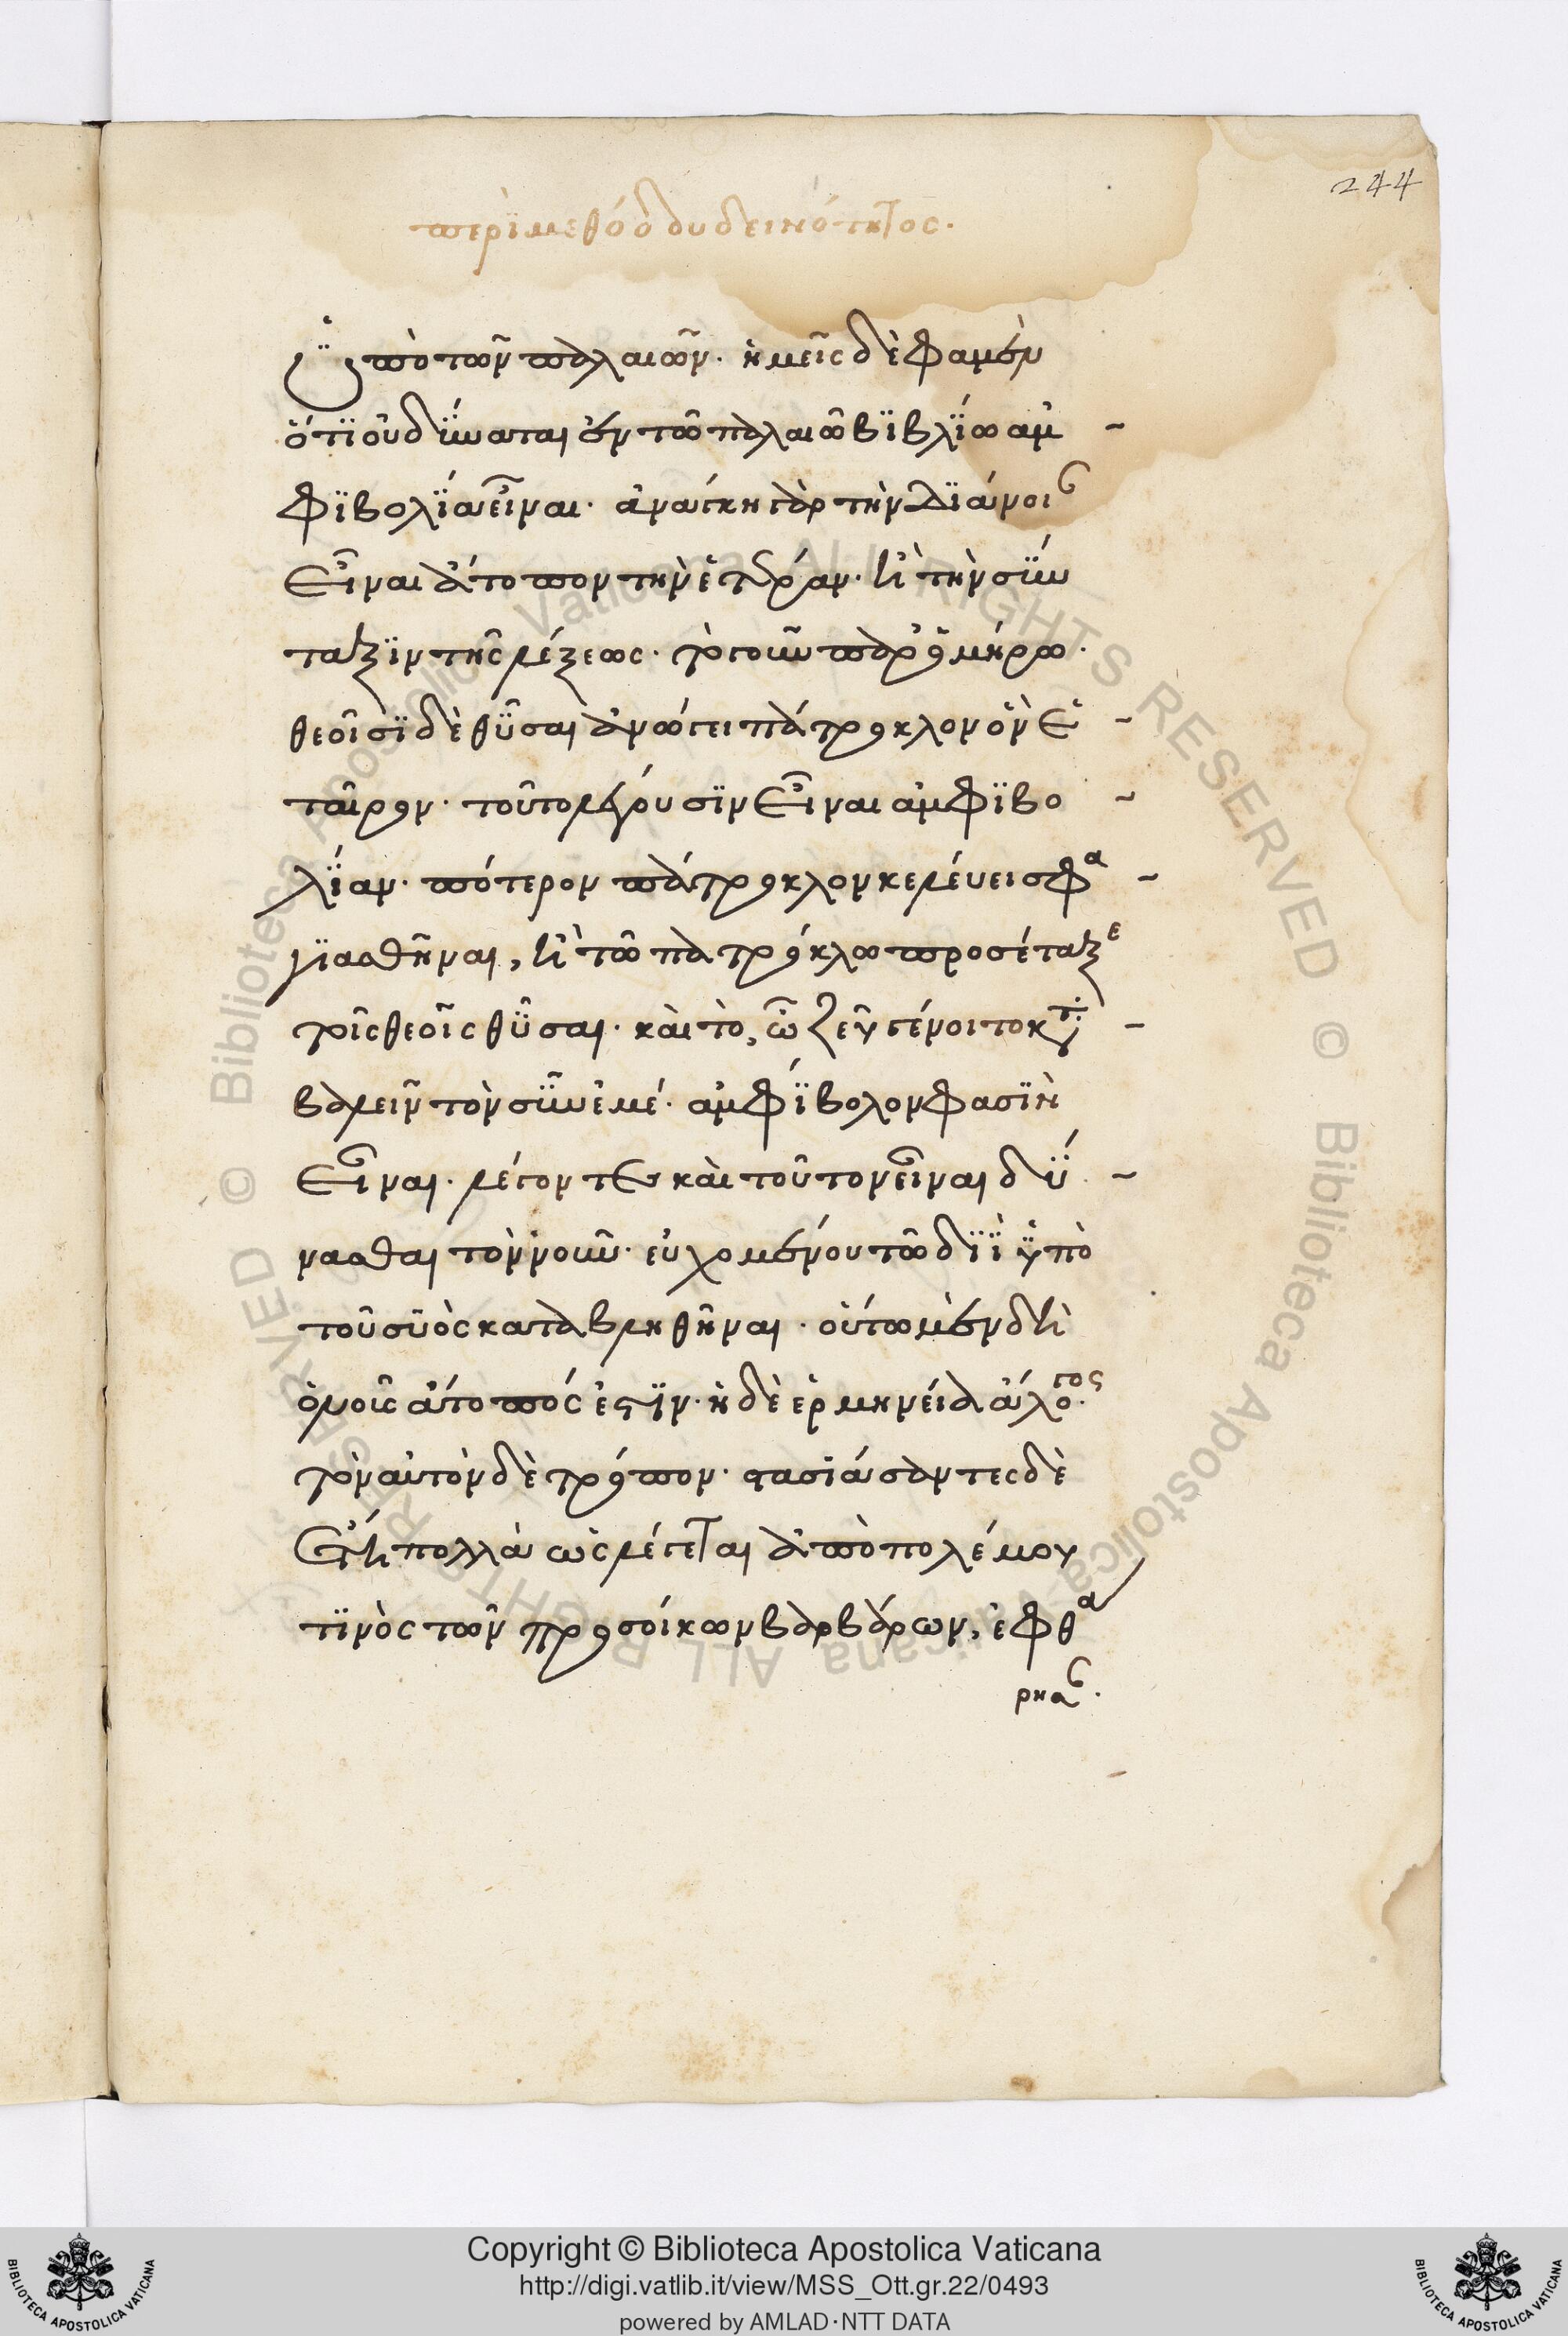 244
περὶ μεθόδου δεινότητος.
Ὑπὸ τῶν παλαιῶν· ἡμεῖς δὲ φαμὲν
ὅτι οὐ δύναται ἐν τῶ παλαιῶ βιβλίω ἀμ
φιβολία εἶναι· ἀνάγκη γὰρ τὴν διάνοιαν
εἶναι ἄτοπον τὴν ἑτέραν· ἢ τὴν σύν
ταξιν τῆς λέξεως· τὸ γοῦν παρ' ὁμήρω·
θεοῖσι δὲ θῦσαι ἀνώγει πάτροκλον ὃν ἑ
ταῖρον· τοῦτο λέγουσιν εἶναι ἀμφιβο
λίαν· πότερον πάτροκλον κελεύει σφα
γιασθῆναι, ἢ τῶ πατρόκλω προσέταξε
τοῖς θεοῖς θῦσαι· καὶ τὸ, ὦ ζεῦ γένοιτο κατα
βαλεῖν τὸν σῦν ἐμέ· ἀμφίβολον φασὶν
εἶναι· λέγονται καὶ τοῦτον εἶναι δύ
νασθαι τὸν νοῦν· εὐχομένου τῶ διῒ ὑπὸ
τοῦ συὸς καταβληθῆναι· οὕτω μὲν δὴ
ὁ νοῦς ἄτοπός ἐστιν· ἡ δὲ ἑρμηνεία ἄλογος·
τὸν αὐτὸν δὲ τρόπον· στασιάσαντες δὲ
ἔτη πολλὰ ὡς λέγεται ἀπὸ πολέμου
τινὸς τῶν προσοίκων βαρβάρων, ἐφθα
ρησαν·
Copyright © Biblioteca Apostolica Vaticana
http://digi.vatlib.it/view/MSS_Ott.gr.22/0493
powered by AMLAD·NTT DATA